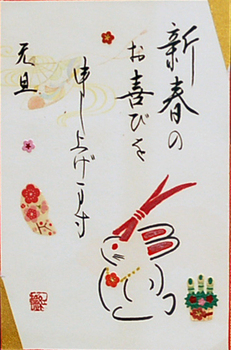 新春の
お喜びを
申し上げます
元旦